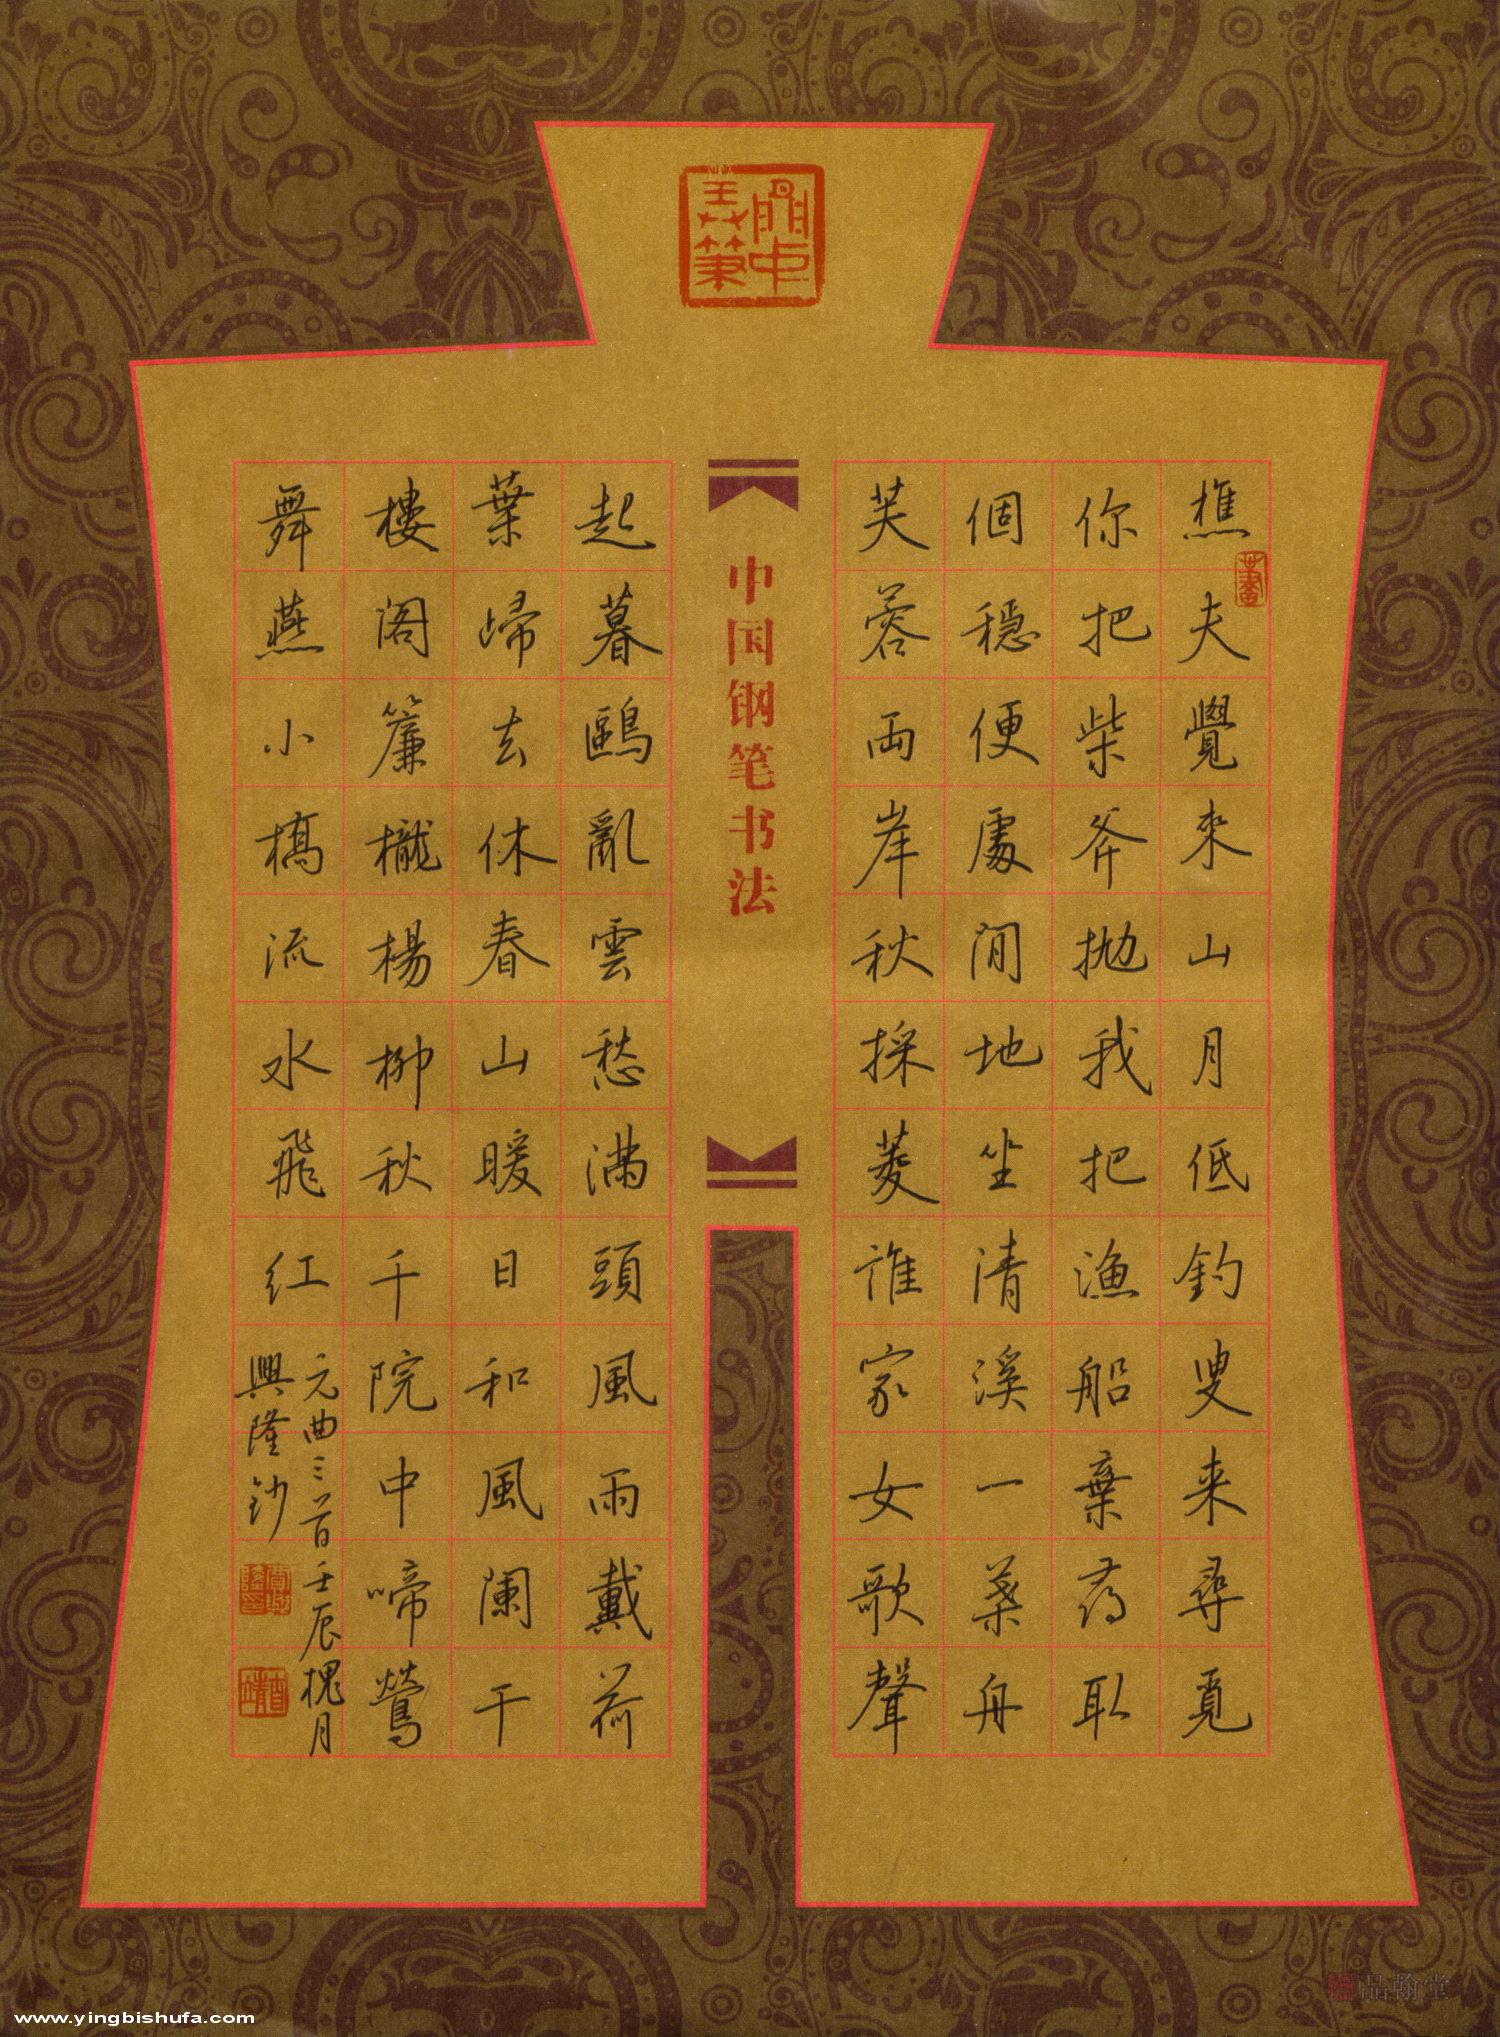 樵夫覺來山月低釣叟来尋覓
你把柴斧抛我把漁船棄尋取
個穩便處閒地坐清溪一葉舟
芙蓉兩岸秋採菱誰家女歌聲
中国钢笔书法
起暮鷗亂雲愁滿頭風雨戴荷
葉歸去休春山暖日和風闌干
樓閣簾櫳楊柳秋千院中啼鶯
舞燕小橋流水飛红
元曲三首壬辰槐月
興隆鈔
品翰堂
www.yingbishufa.com